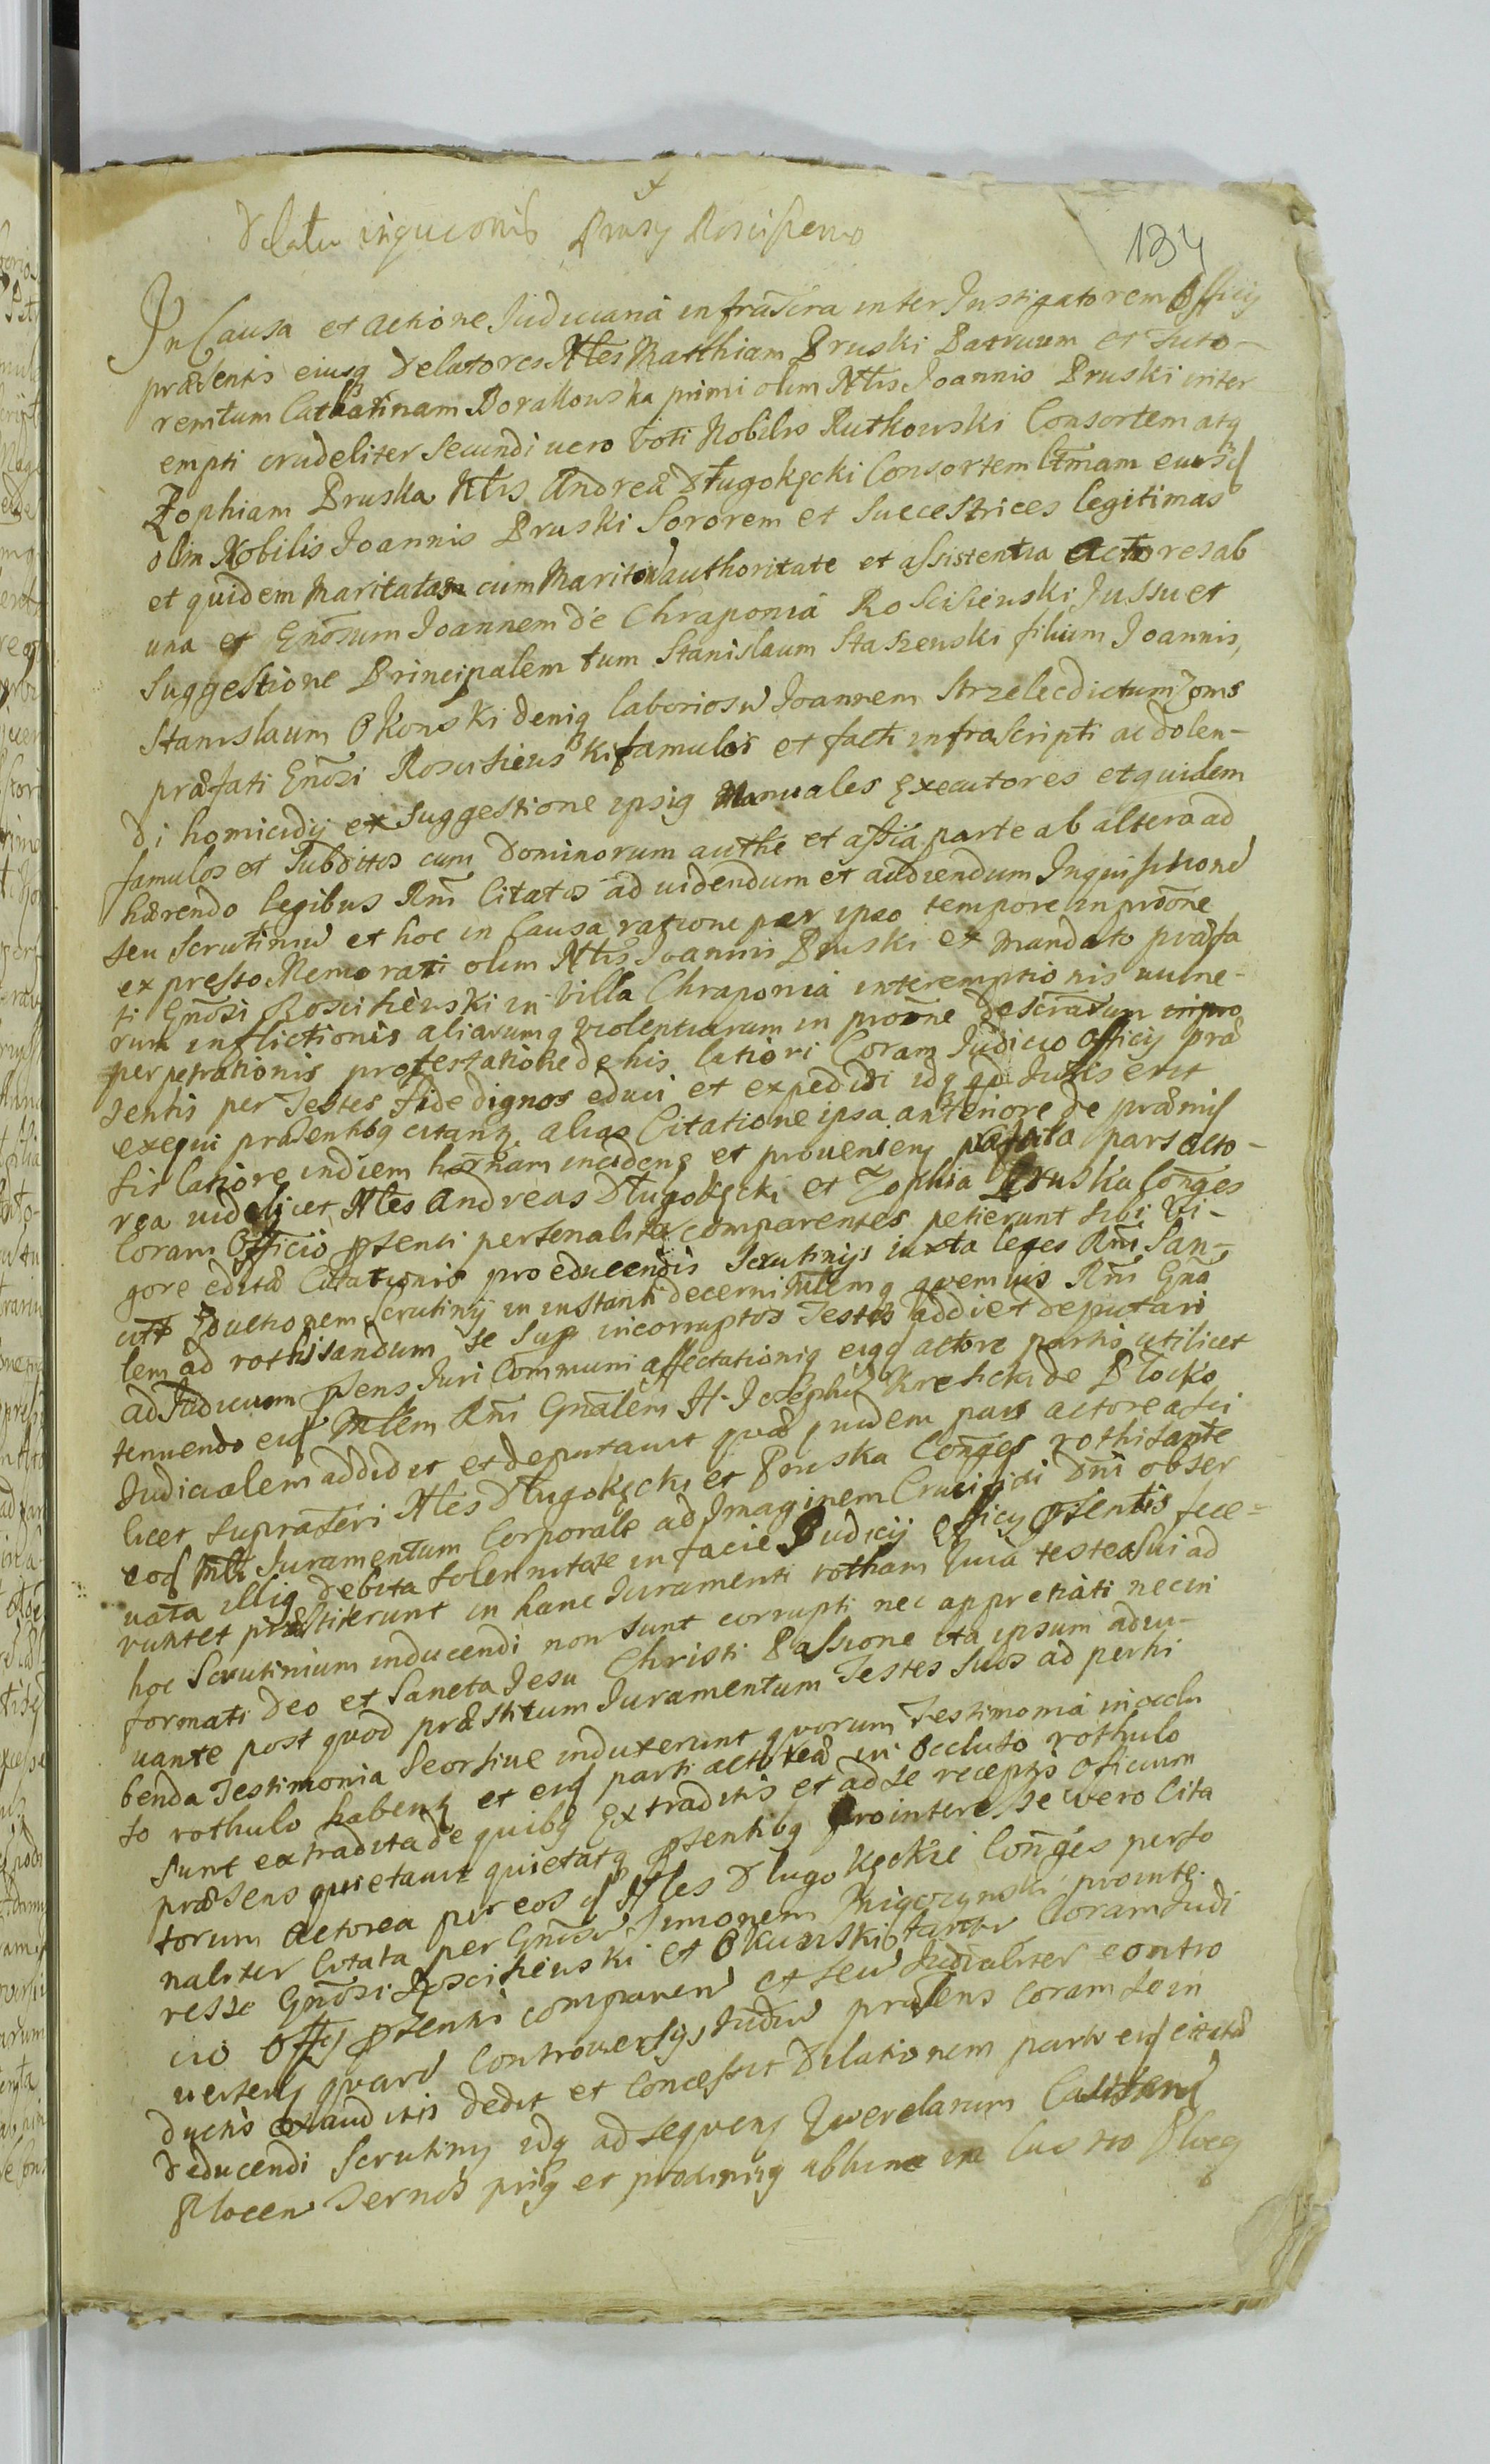 134
In Causa et actione Judiciaria infrascra inter Instigatorem Officij
præsentis eiusq delatores Nles Matthiam Pruski Patruum et Tuto-
rem tum Catharinam Borakowska primi olim Nlis Joannis Pruski inter
empti crudeliter Secundi uero Voti Nobilis Rutkowski Consortem atq
Zophiam Pruska Nlis Andreæ Długokęcki Consortem
olim Nobilis Joannis Pruski Sororem et Successtrices legitimas
et quidem Maritatam cum Maritor authoritate et assistentia Actores ab
una et Gnosum Joannem de Chraponia Roscisiewski Jussu et
Suggestione Principalem tum Stanislaum Staszewski filium Joannis,
Stanislaum Okonski deniq laborios Joannem Strzelec dictum
præfati Gnosi Roscisiewski famulos et facti infrascripti ac dolen-
di homicidij ex suggestione ipsiq Manuales Executores et quidem
famulos et Subditos cum Dominorum authe et assia parte ab altera ad
hærendo legibus Rni Citatos ad uidendum et audiendum Inquisitione
seu Scrutiniu et hoc in Causa ratione
expresso Memorati olim Nlis Joannis Pruski ex Mandato præfa
ti Gnosi Roscisiewski in Villa Chraponia interemptionis uulne-
rum inflictionis aliarumq violentiarum in
perpetrationis protestatione de his latiori Coram Judicio Officij præ
sentis per Testes fide dignos educi et expediri idq qd Juris erit
exequi præsentibq citans, alias Citatione ipsa anteriore de præmis
sis latiore in diem hornam incidens et proueniens pars acto-
rea uidelicet Nles Andreas Długokęcki et Zophia Pruska Conges
Coram Officio psenti personaliter comparentes petierunt sibi Vi-
gore editæ Citationis pro educendis Scrutinijs iuxta leges Rni San-
citis Eductionem Scrutinij in instanti decerni quemuis Rni Gna
lem ad rothisandum se Sup incorruptos Testes addi et deputari
ad Judicium psens Juri Communi affectationiq eiqd actoræ partis utilicet
tenuendo eid Rni Gnalem H. Josephu Kresicki de Plocko
Judicialem addidit et deputauit quæ quidem pars actorea sci
licet suprascri Nles Długokęcki et Pruska Conges rothisante
eod Juramentum Corporale ad Imaginem Crucifixi Dni obser
uata illiq debita solennitate in facie Judicij Officij psentis fece-
runt et præstiterunt in hanc Juramenti rotham Quia testes sui ad
hoc Scrutinium inducendi non sunt corrupti nec appretiati nec in
formati Deo et Sancta Jesu Christi Passione ita ipsum adiu-
uante post quod præstitum Juramentum Testes suos ad perhi
benda Testimonia Seorsiue induxerunt quorum Testimonia in occlu
so rothulo habens et eid parti actoreæ in occluso rothulo
sunt extradita de quibq Extraditis et ad se receptis Officium
præsens quietauit quietatq psentibq Pro interesse uero Cita
torum Actorea per eos Nles Długokęckie Conges perso
naliter Citata per Gnosu Simonem pro inte
resse Gnosi Roscisiewski et Okunski Coram Judi
cio Offij psenti comparen et seu Judialiter contro
uertens quaru Controuersijs Judiu præsens Coram se in
ductis exauditis dedit et Concessit Dilationem parti eid citatæ
deducendi Scrutinij idq ad sequens Querelarum
Plocen Ternos priq et proximiq abhinc in Castro Ploceq